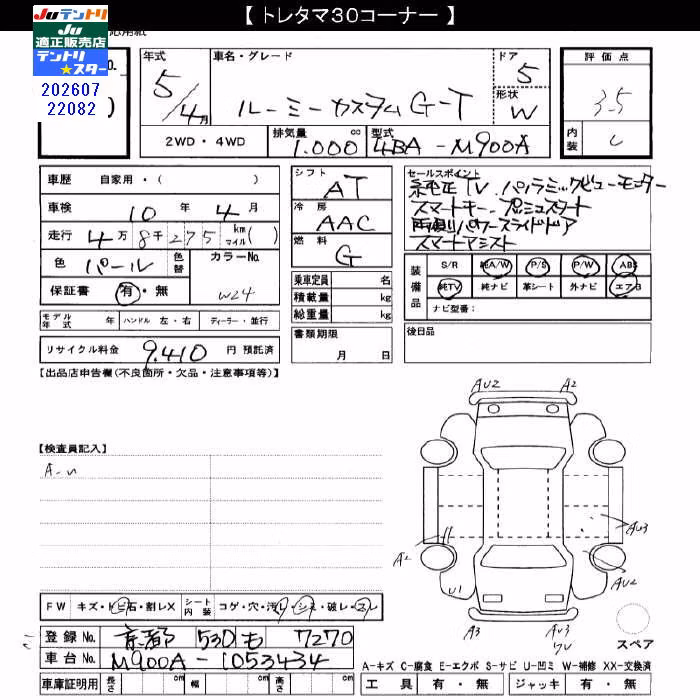 【 トレタマ30コーナー 】
Juテントリ
Ju
適正販売店
テントリ
★スター
202607
22082
年式
5/4月
車名・グレード
ルーミーカスタムG-T
ドア
5
形状
W
評価点
3.5
内装
C
2WD・4WD
排気量
1.000
cc
型式
4BA-M900A
車歴 自家用・( )
車検 10 年 4 月
走行 4万 8千 275 km マイル( )
色 パール 色替
カラーNo.
W24
保証書 有・無
モデル年式 年 ハンドル 左・右 ディーラー・並行
リサイクル料金 9.410 円 預託済
シフト
AT
冷房
AAC
燃料
G
乗車定員 名
積載量 kg
総重量 kg
書類期限
月 日
セールスポイント
純正TV.パノラミックビューモニター
スマートキー.プッシュスタート
両側パワースライドドア
スマートアシスト
装備品
S/R 純A/W P/S P/W ABS
純TV 純ナビ 革シート 外ナビ エアB
ナビ型番:
後日品
【出品店申告欄(不良箇所・欠品・注意事項等)】
【検査員記入】
A-U
AU2
A2
AU3
A2
AU2
U1
A3
AU3
スペア
FW キズ・トビ石・割レX シート内装 コゲ・穴・汚レ・シミ・破レ・スレ
登録No. 京都 530 も 7270
車台No. M900A-1053434
車庫証明用 長さ cm 幅 cm 高さ cm
A-キズ C-腐食 E-エクボ S-サビ U-凹ミ W-補修 XX-交換済
工具 有・無 ジャッキ 有・無